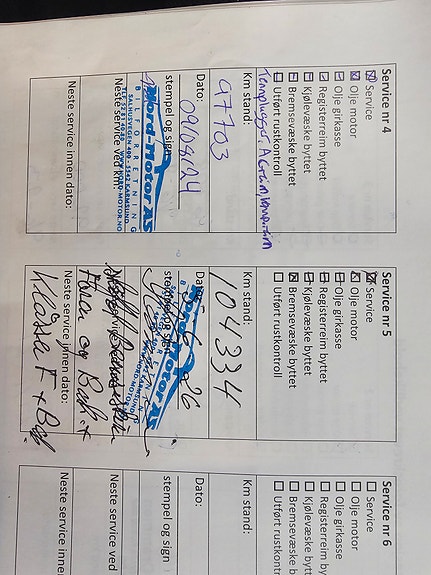 Service nr 4
Service
Olje motor
Olje girkasse
Registerreim byttet
Kjølevæske byttet
Bremsevæske byttet
Utført rustkontroll
Tennplugger,
Km stand:
97703
Dato:
09/04/24
stempel og sign
Nord-Motor AS
BILFORRETNING
SALHUSVEGEN 400 - 5542 KARMSUND
WWW.NORD-MOTOR.NO
Neste service ved km:
Neste service innen dato:
Service nr 5
Service
Olje motor
Olje girkasse
Registerreim byttet
Kjølevæske byttet
Bremsevæske byttet
Utført rustkontroll
Km stand:
104334
Dato:
26
stempel og sign
Motor AS
KARMSUND
NORD-MOTOR
Foran og Bak. +
Neste service innen dato:
Klosser F + Bak
Service nr 6
Service
Olje motor
Olje girkasse
Registerreim b
Kjølevæske byt
Bremsevæske b
Utført rustkont
Km stand:
Dato:
stempel og sign
Neste service ved
Neste service inne